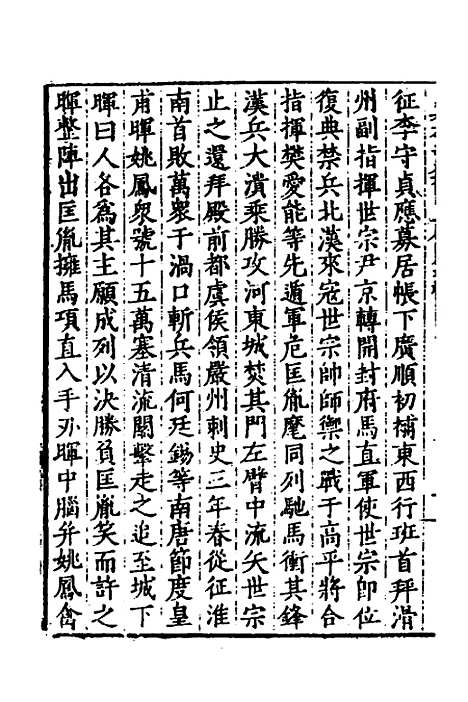 征李守貞應募居帳下廣順初補東西行班首拜滑
州副指揮世宗尹京轉開封府馬直軍使世宗即位
復典禁兵北漢來寇世宗帥師禦之戰于高平將合
指揮樊愛能等先遁軍危匡胤麾同列馳馬衝其鋒
漢兵大潰乘勝攻河東城焚其門左臂中流矢世宗
止之還拜殿前都虞侯領嚴州刺史三年春從征淮
南首敗萬衆于渦口斬兵馬何廷錫等南唐節度皇
甫暉姚鳳衆號十五萬塞清流關擊走之追至城下
暉曰人各爲其主願成列以決勝負匡胤笑而許之
暉整陣出匡胤擁馬項直入手刃暉中腦并姚鳳禽